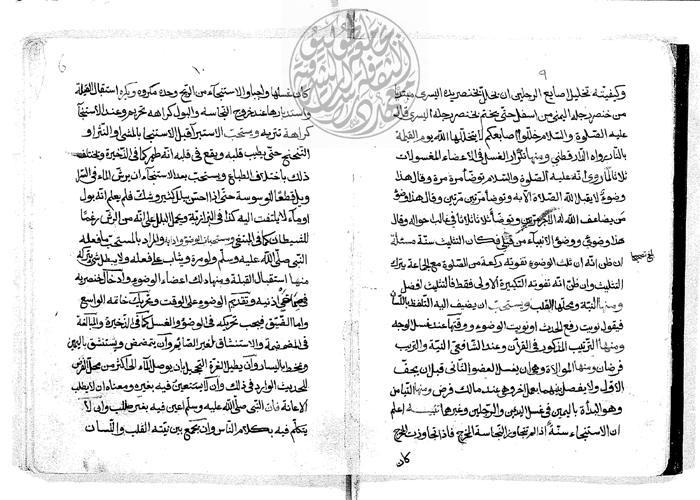 ٩
وكيفيته تخليل اصابع الرجلين ان يخلل بخنصر يده اليسرى مبتديا
من خنصر رجله اليمنى من اسفل حتى يختم بخنصر رجله اليسرى قال
عليه الصلوة والسلام خللوا اصابعكم لا يتخللها الله يوم القيمة
بالنار رواه الدارقطني ومنها تكرار الغسل في الاعضاء المغسولات
ثلاثا لما روى انه عليه الصلوة والسلام توضأ مرة مرة وقال هذا
وضوء لا يقبل الله الصلوة الا به وتوضأ مرتين مرتين وقال هذا وضوء
من يضاعف الله له الاجر مرتين وتوضأ ثلاثا ثلاثا في غالب حواله وقال
هذا وضوئي ووضوء الانبياء من قبلي فكان التثليث سنة مسئلة
ان ظن انه ان ثلث الوضوء تفوته ركعة من الصلوة مع الجماعة يترك
التثليث وان ظن انه تفوته التكبيرة الاولى فقط فالتثليث افضل
ومنها النية ومحلها القلب ويستحب ان يضيف اليه التلفظ باللسان
فيقول نويت رفع الحدث او نويت الوضوء ووقتها عند غسل الوجه
ومنها الترتيب المذكور في القرآن وعند الشافعي النية والترتيب
فرضان ومنها الموالاة وهو ان يغسل العضو الثاني قبل ان يجف
الاول ولا يفصل بينهما بعمل آخر وهي عند مالك فرض ومنها التيامن
وهو البدأة باليمين في غسل اليدين والرجلين وغيرها تنبيه اعلم
ان الاستنجاء سنة اذا لم تتجاوز النجاسة المخرج فاذا تجاوزت المخرج
كان
١٠
كان غسلها واجبا والاستنجاء من الريح وحده مكروه ويكره استقبال القبلة
واستدبارها عند خروج النجاسة والبول كراهة تحريم وعند الاستنجاء
كراهة تنزيه ويستحب الاستبراء قبل الاستنجاء بالمشي او النثر او
التنحنح حتى يطيب قلبه ويقع في قلبه انه طهر كما في الذخيرة ويختلف
ذلك باختلاف الطباع ويستحب بعد الاستنجاء ان يرش الماء في السراويل
قطعا للوسوسة حتى اذا احس ببلل كثير وشك فلم يعلم انه بول
او ماء لا يلتفت اليه كذا في البزازية ويحمل البلل على انه من الرش رغما
للشيطان كما في المبتغى والمراد بالمستحب ما فعله
النبي صلى الله عليه وسلم ولو مرة ويثاب على فعله ولا يبطل بتركه
منها استقبال القبلة ومنها دلك اعضاء الوضوء وادخال خنصريه
في صماخي اذنيه وتقديم الوضوء على الوقت وتحريك خاتمه الواسع
واما الضيق فيجب تحريكه في الوضوء والغسل كما في الذخيرة والمبالغة
في المضمضة والاستنشاق لغير الصائم وان يتمضمض ويستنشق باليمين
ويمتخط باليسار وان يطيل الغرة والتحجيل بان يوصل الماء الى اكثر من محل الفرض
للحديث الوارد في ذلك وان لا يستعين فيه بغيره ومعناه ان لا يطلب
الاعانة فان النبي صلى الله عليه وسلم اعين فيه بغير طلب وان لا
يتكلم فيه بكلام الناس وان يجمع بين نيته القلب واللسان